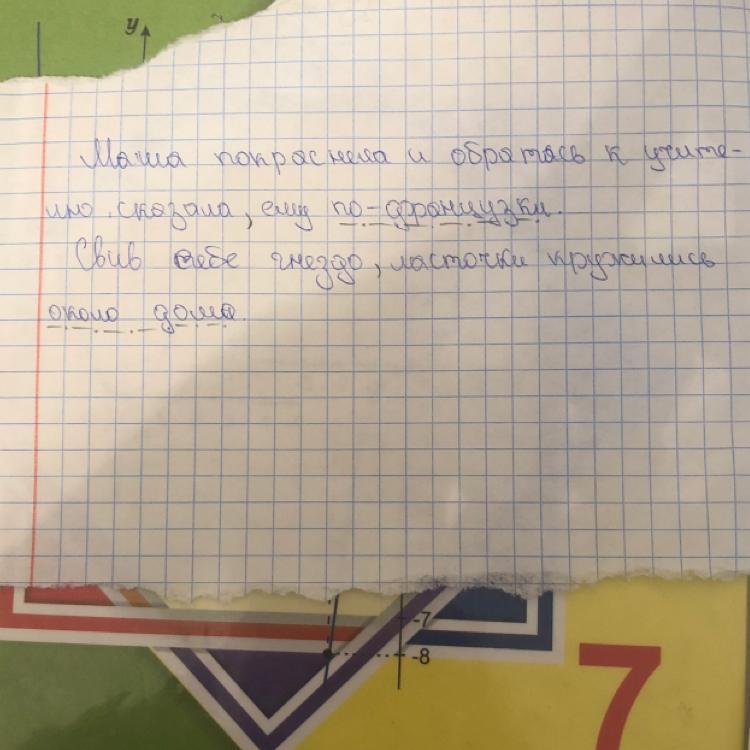 y
Маша покраснела и обратась к учите-
лю сказала, ему по-французки.
Свив себе гнездо, ласточки кружились
около дома.
-7
-8
7